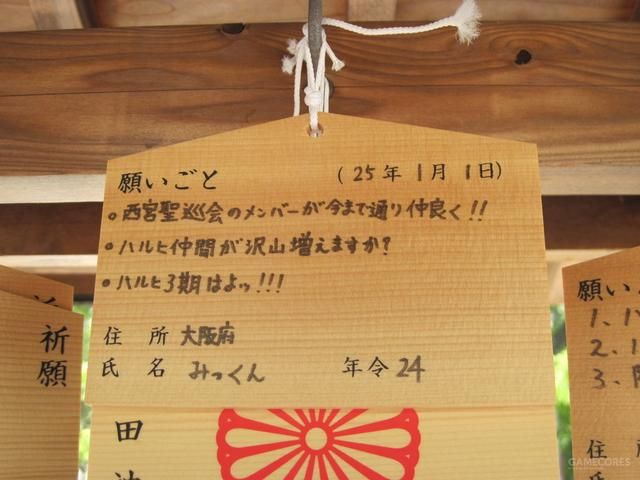 願いごと (25年 1月 1日)
。西宮聖巡会のメンバーが今まで通り仲良く!!
。ハルヒ仲間が沢山増えますか?
。ハルヒ3期はよッ!!!
住 所 大阪府
氏 名 みっくん 年令 24
田
祈願
願い
1、
2、
3、
住
氏
GAMECORES